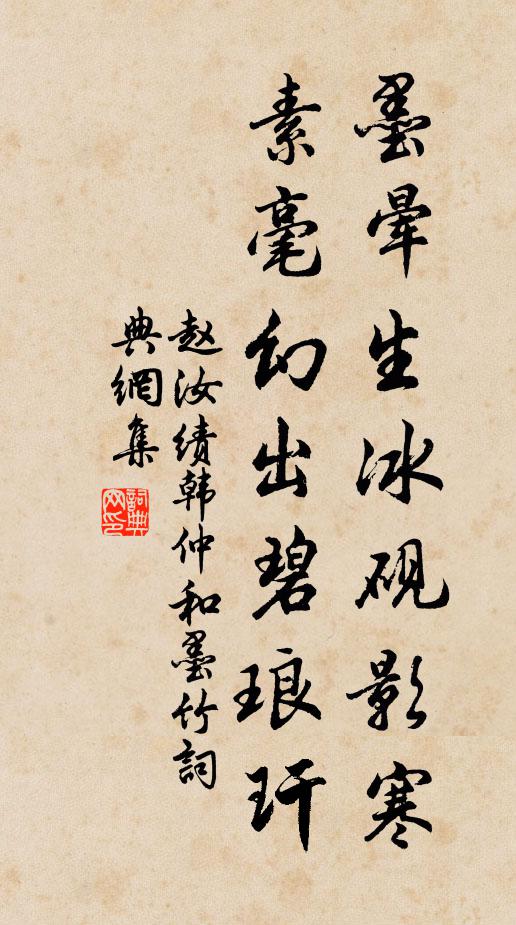 墨暈生冰硯影寒
素毫幻出碧琅玕
赵汝绩韩仲和墨竹詞
典網集
詞典网印